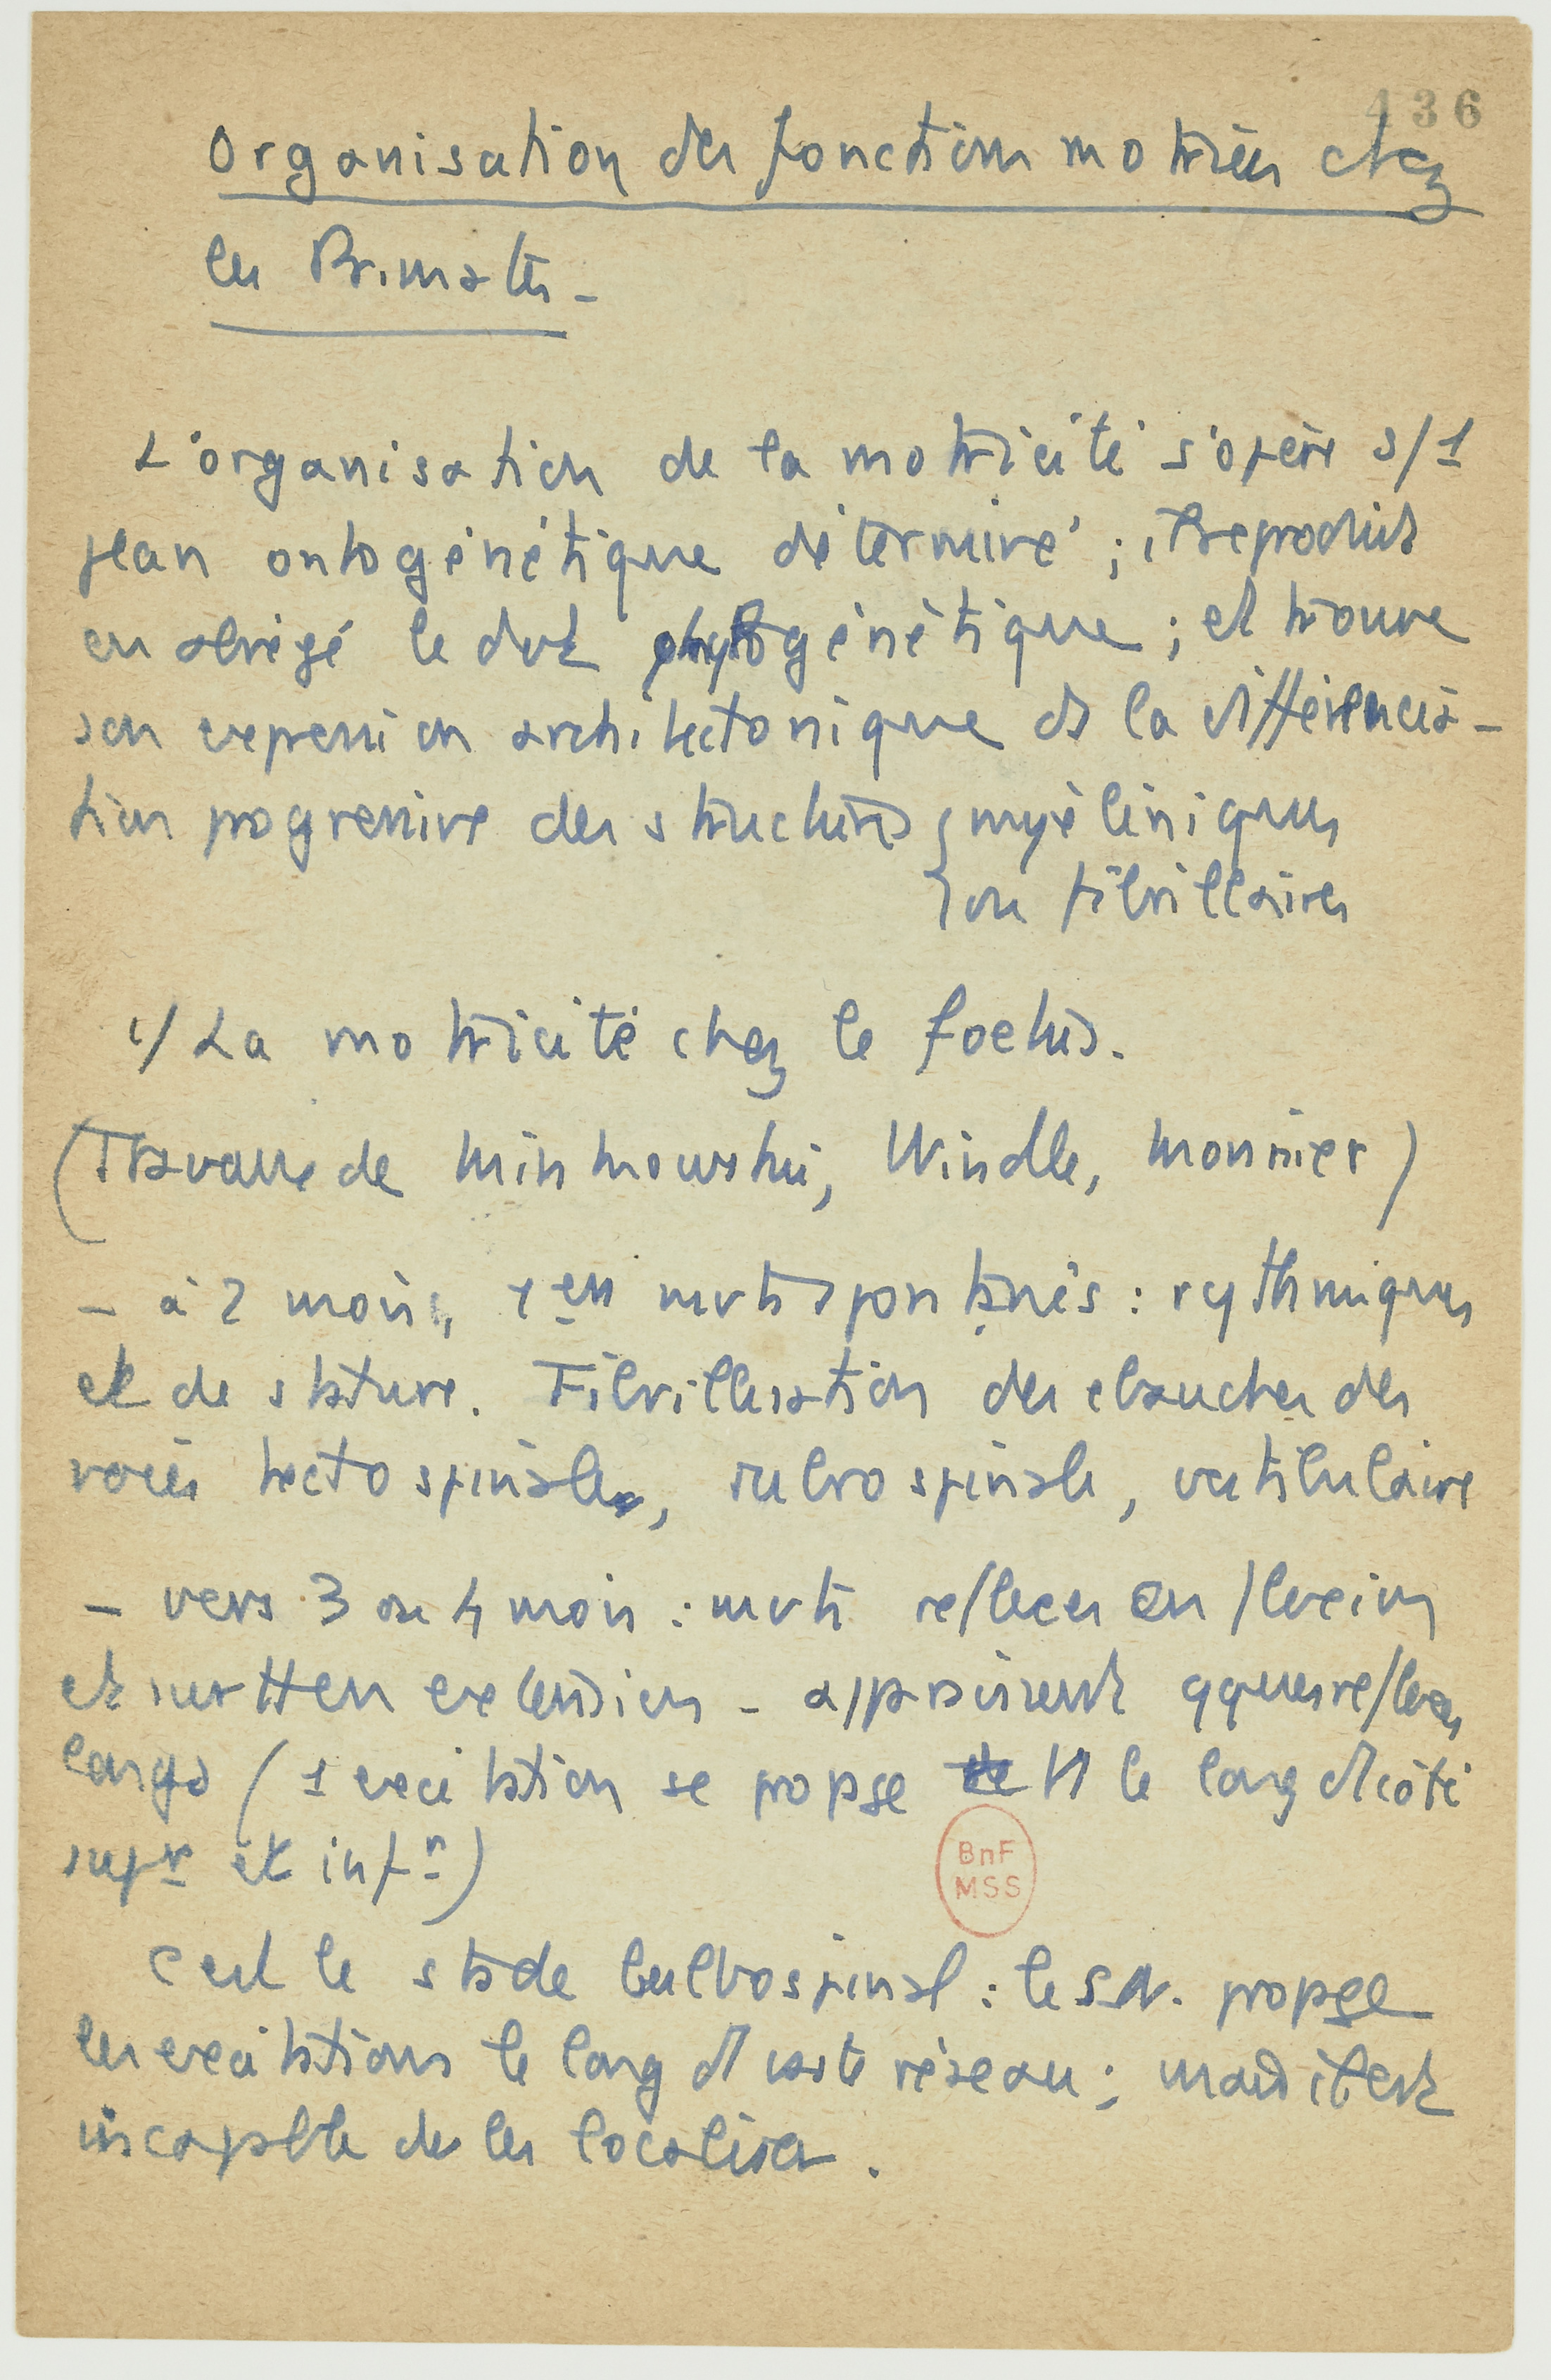 436
Organisation des fonctions motrices chez
les Primates -
L'organisation de la motricité s'opère s/ 1
plan ontogénétique déterminé ; il reproduit
en abrégé le dvt phylogénétique ; et trouve
son expression architectonique ds la différencia-
tion progressive des structures { myéliniques
} ou fibrillaires
1/ La motricité chez le foetus.
(Travaux de Minkowski, Windle, Monnier)
- à 2 mois, 1ers mvts spontanés : rythmiques
et de stature. Fibrillisation des ebauches des
voies tectospinale, rubrospinale, vestibulaire
- vers 3 ou 4 mois : mvts reflexes en flexion
et surtt en extension - apparaissent qques reflexes
longs (1 excitation se propage le long d côté
supr et infr)
C'est le stade bulbospinal : le S.N. propage
les excitations le long d'1 vaste réseau ; mais il est
incapable de les localiser.
BnF
MSS